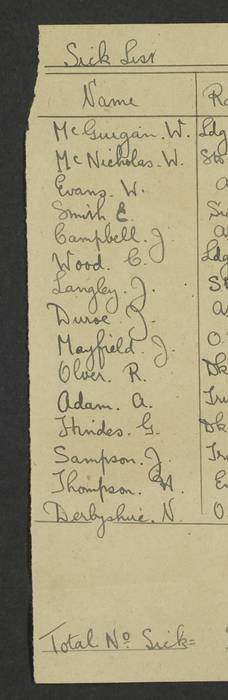 Sick List
Name
McGuigan. W. Ldg
McNicholas. W. Sto
Evans. W. a
Smith E.
Campbell. J. a
Wood. C. Ldg
Langley. J. St
Duroe. J.
Mayfield. J. O
Olver. R. Dk
Adam. A.
Hindes. G. Dk
Sampson. J.
Thompson. A. E
Derbyshire. N. O
Total No Sick =